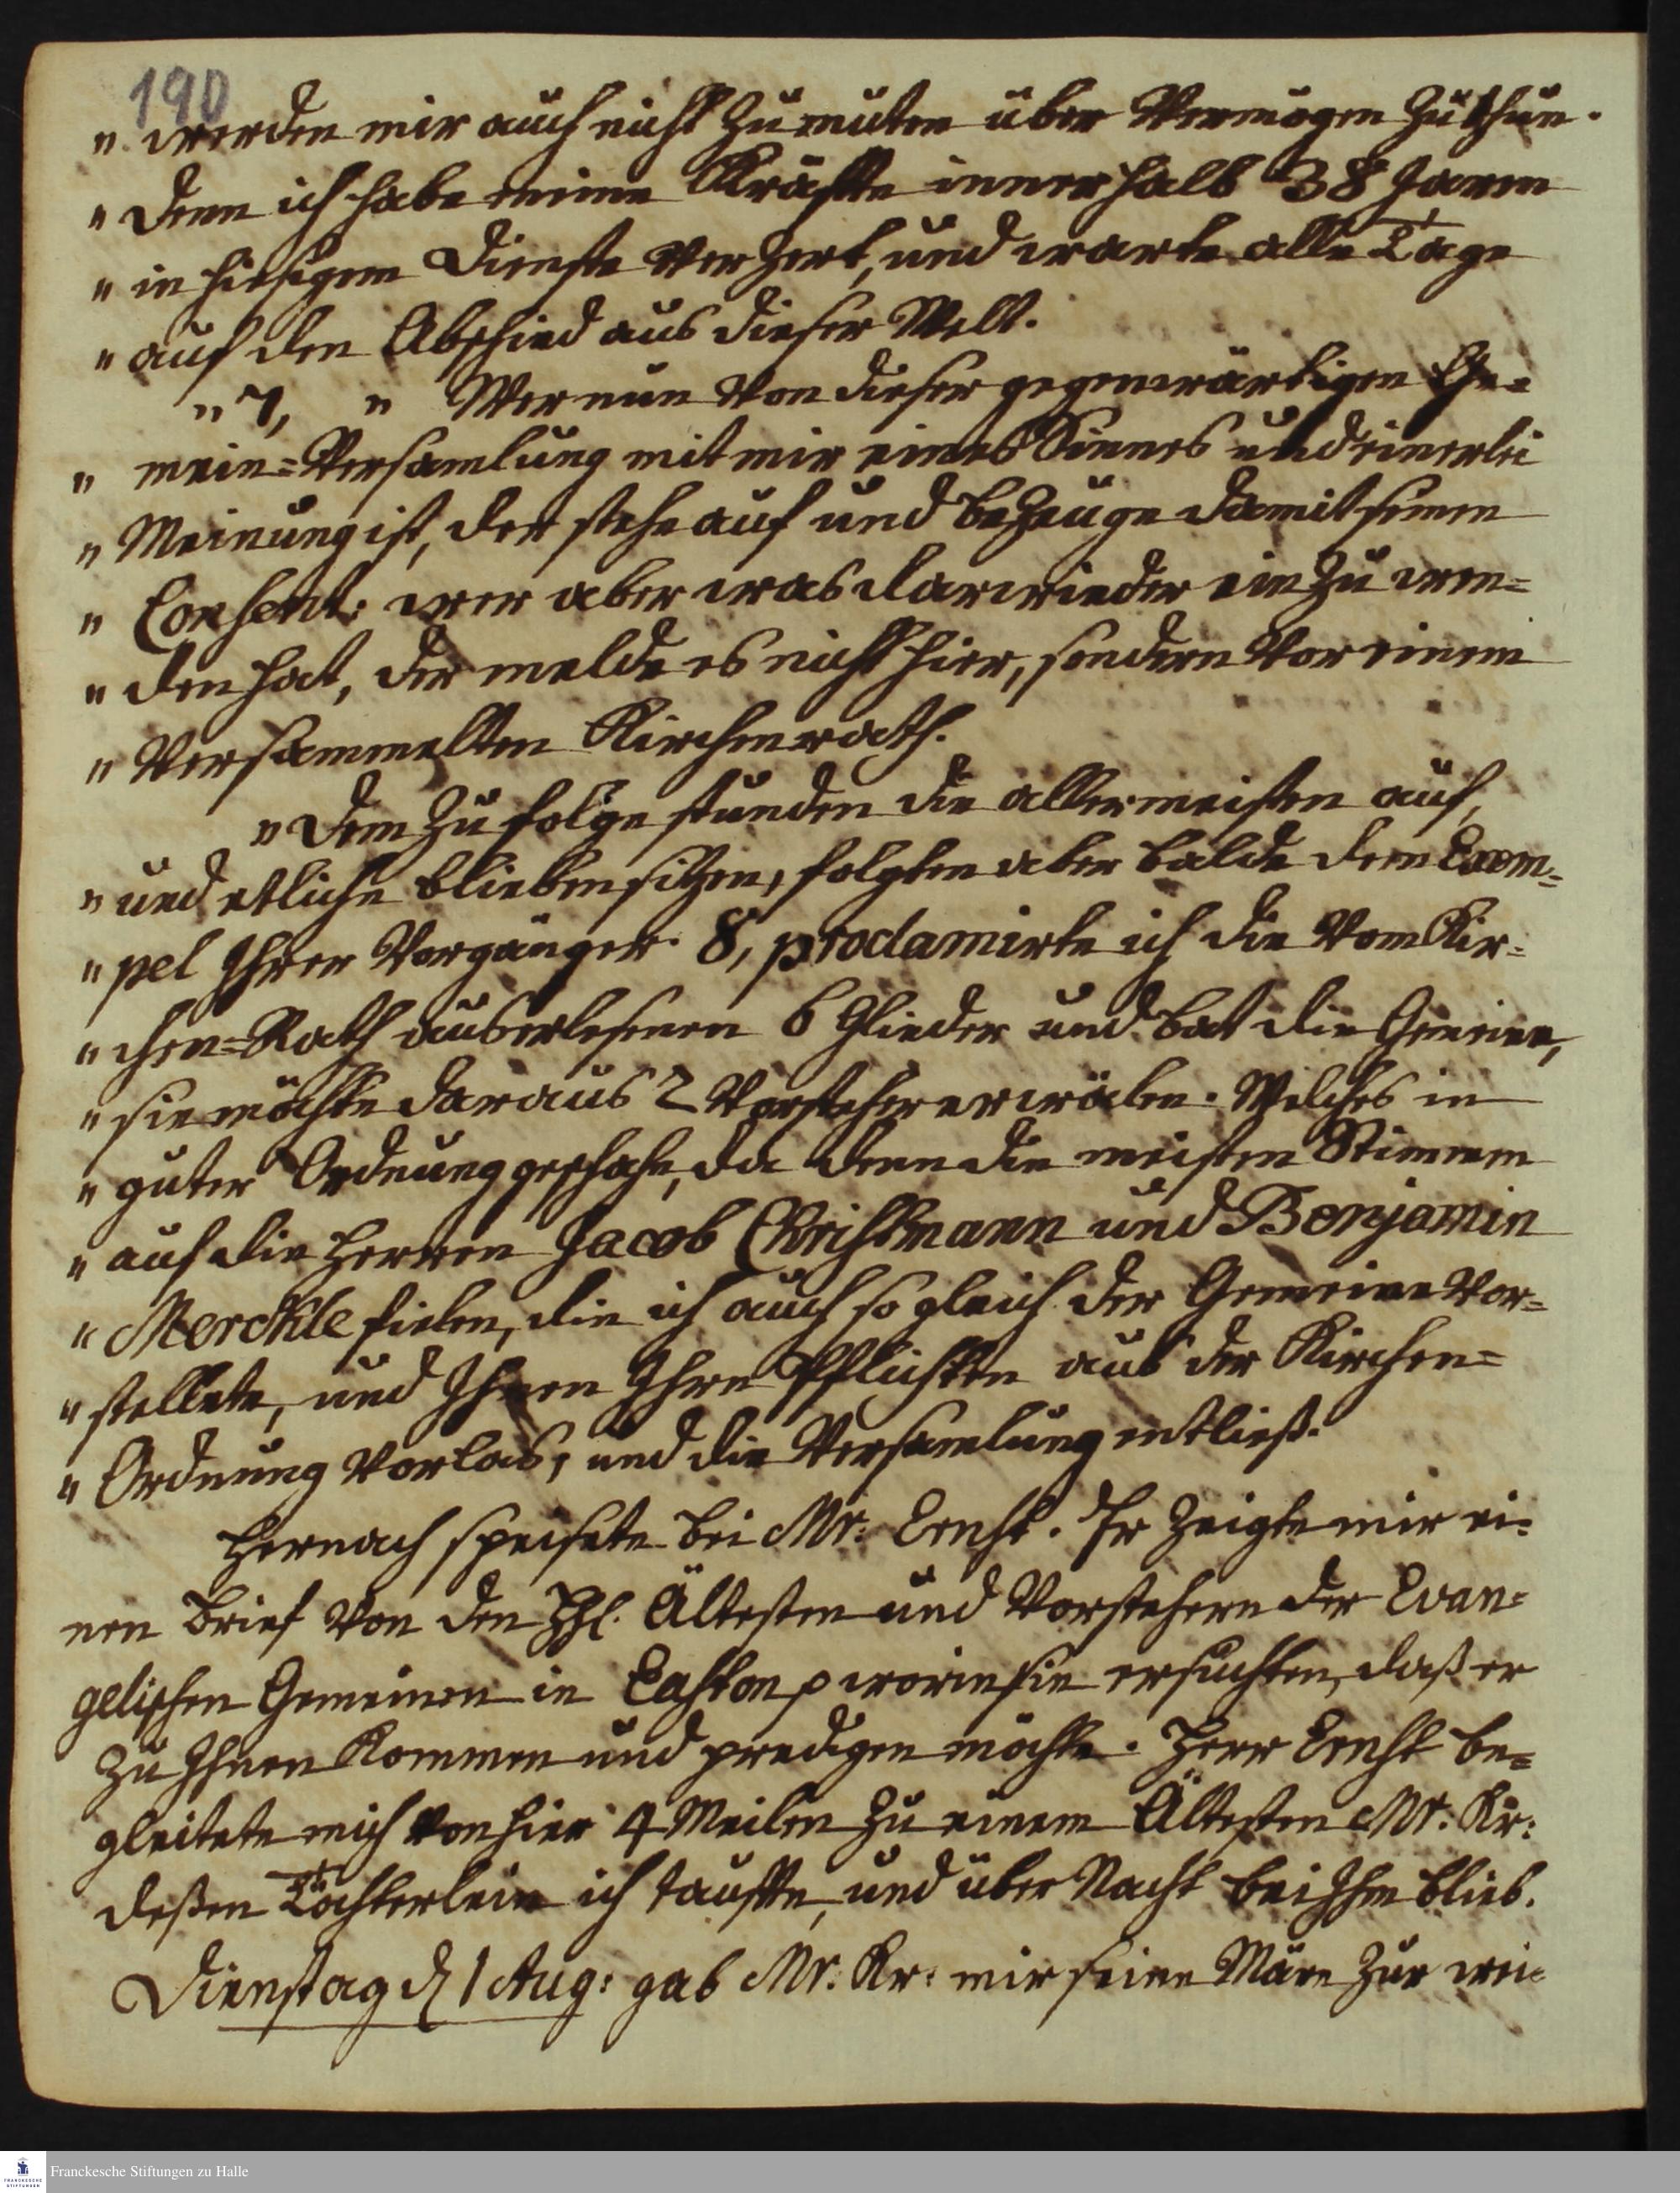 190
" werden mir auch nicht zu muten über Vermögen zu thun.
" denn ich habe meine Kräffte innerhalb 38 Jaren
" in hiesigem Dienste verzert, und warte alle Tage
" auf den Abschied aus dieser Welt.
" 7, " Wer nun von dieser gegenwärtigen Ge=
" mein=Versamlung mit mir eines Sinnes und einerlei
" Meinung ist, der stehe auf und bezeuge damit seinen
" Consent: wer aber was darwieder ein zu wen=
" den hat, der melde es nicht hier, sondern vor einem
" Versammelten Kirchenrath.
" Dem zu folge stunden die allermeisten auf,
" und etliche blieben sitzen, folgten aber balde dem Exem=
" pel Ihrer Vorgänger. 8, proclamirte ich die vom Kir=
" chen=Rath auserlesenen 6 Glieder und bat die Gemeine,
" sie möchte daraus 2 Vorsteher erwälen. Welches in
" guter Ordnung geschahe, da denn die meisten Stimmen
" auf die Herren Jacob Christmann und Benjamin
" Merckle fielen, die ich auch so gleich der Gemeine vor=
" stellete, und Ihnen Ihre Pflichten aus der Kirchen=
" Ordnung vorlas, und die Versamlung entließ.
Hernach speisete bei Mr. Ernst. Er zeigte mir ei=
nen Brief von den HhE. Ältesten und Vorstehern der Evan=
gelischen Gemeinen in Easton p worin sie ersuchten, daß er
zu Ihnen kommen und predigen möchte. Herr Ernst be=
gleitete mich von hier 4 Meilen zu einem Ältesten Mr. Kr:
deßen Töchterlein ich tauffte, und über Nacht bei Ihm blieb.
Dienstag d 1 Aug: gab Mr. Kr: mir seine Märe zur wei=
Franckesche Stiftungen zu Halle